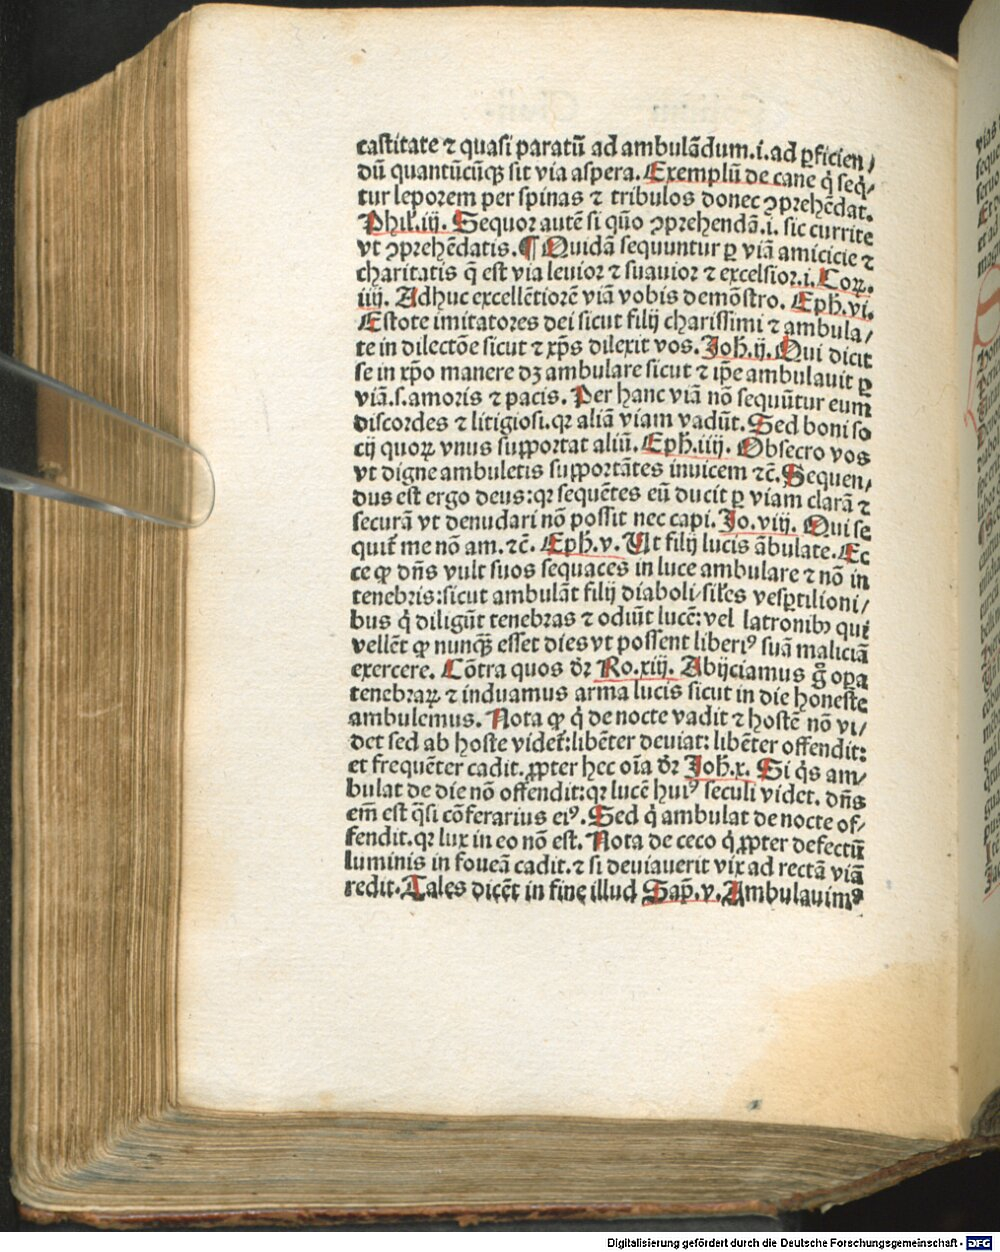 castitate ⁊ quasi paratū ad ambulādum.i.ad ꝑficien/
dū quantūcūqꝫ sit via aspera. Exemplū de cane q̇ seq̇/
tur leporem per spinas ⁊ tribulos donec ꝯprehēdat.
Phil'.iij. Sequor autē si quo ꝯprehendā.i. sic currite
vt ꝯprehēdatis. ¶ Quidā sequuntur ꝑ viā amicicie ⁊
charitatis q̄ est via leuior ⁊ suauior ⁊ excelsior.i. Coꝝ.
iiij. Adhuc excellētiorē viā vobis demōstro. Eph.vi.
Estote imitatores dei sicut filij charissimi ⁊ ambula/
te in dilectōe sicut ⁊ xp̄s dilexit vos. Joh̄.ij. Qui dicit
se in xp̄o manere dꝫ ambulare sicut ⁊ ip̄e ambulauit ꝑ
viā.s.amoris ⁊ pacis. Per hanc viā nō sequūtur eum
discordes ⁊ litigiosi.qꝛ aliā viam vadūt. Sed boni so
cij quoꝝ vnus supportat aliū. Eph̄.iiij. Obsecro vos
vt digne ambuletis supportātes inuicem ⁊c̄. Sequen/
dus est ergo deus:qꝛ sequētes eū ducit ꝑ viam clarā ⁊
securā vt denudari nō possit nec capi. Jo.viij. Qui se
quit̄ me nō am.⁊c̄. Eph̄.v. Ut filij lucis ābulate. Ec
ce ꝙ dn̄s vult suos sequaces in luce ambulare ⁊ nō in
tenebris:sicut ambulāt filij diaboli/sil'es vesꝑtilioni/
bus q̇ diligūt tenebras ⁊ odiūt lucē:vel latronibꝫ qui
vellēt ꝙ nunqꝫ̄ esset dies vt possent liberiꝰ suā maliciā
exercere. Cōtra quos dr̄ Ro.xiij. Abijciamus g̊ oꝑa
tenebraꝝ ⁊ induamus arma lucis sicut in die honeste
ambulemus. Nota ꝙ q̇ de nocte vadit ⁊ hostē nō vi/
det sed ab hoste videt̄:libēter deuiat: libēter offendit:
et frequēter cadit. ꝓpter hec oīa dr̄ Joh̄.x. Si q̇s am/
bulat de die nō offendit:qꝛ lucē huiꝰ seculi videt. dn̄s
em̄ est q̇si cōferarius eiꝰ. Sed q̇ ambulat de nocte of/
fendit.qꝛ lux in eo nō est. Nota de ceco q̇ ꝓpter defectū
luminis in foueā cadit.⁊ si deuiauerit vix ad rectā viā
redit. Tales dicēt in fine illud Sap̄.v. Ambulauimꝰ
Digitalisierung gefördert durch die Deutsche Forschungsgemeinschaft - DFG